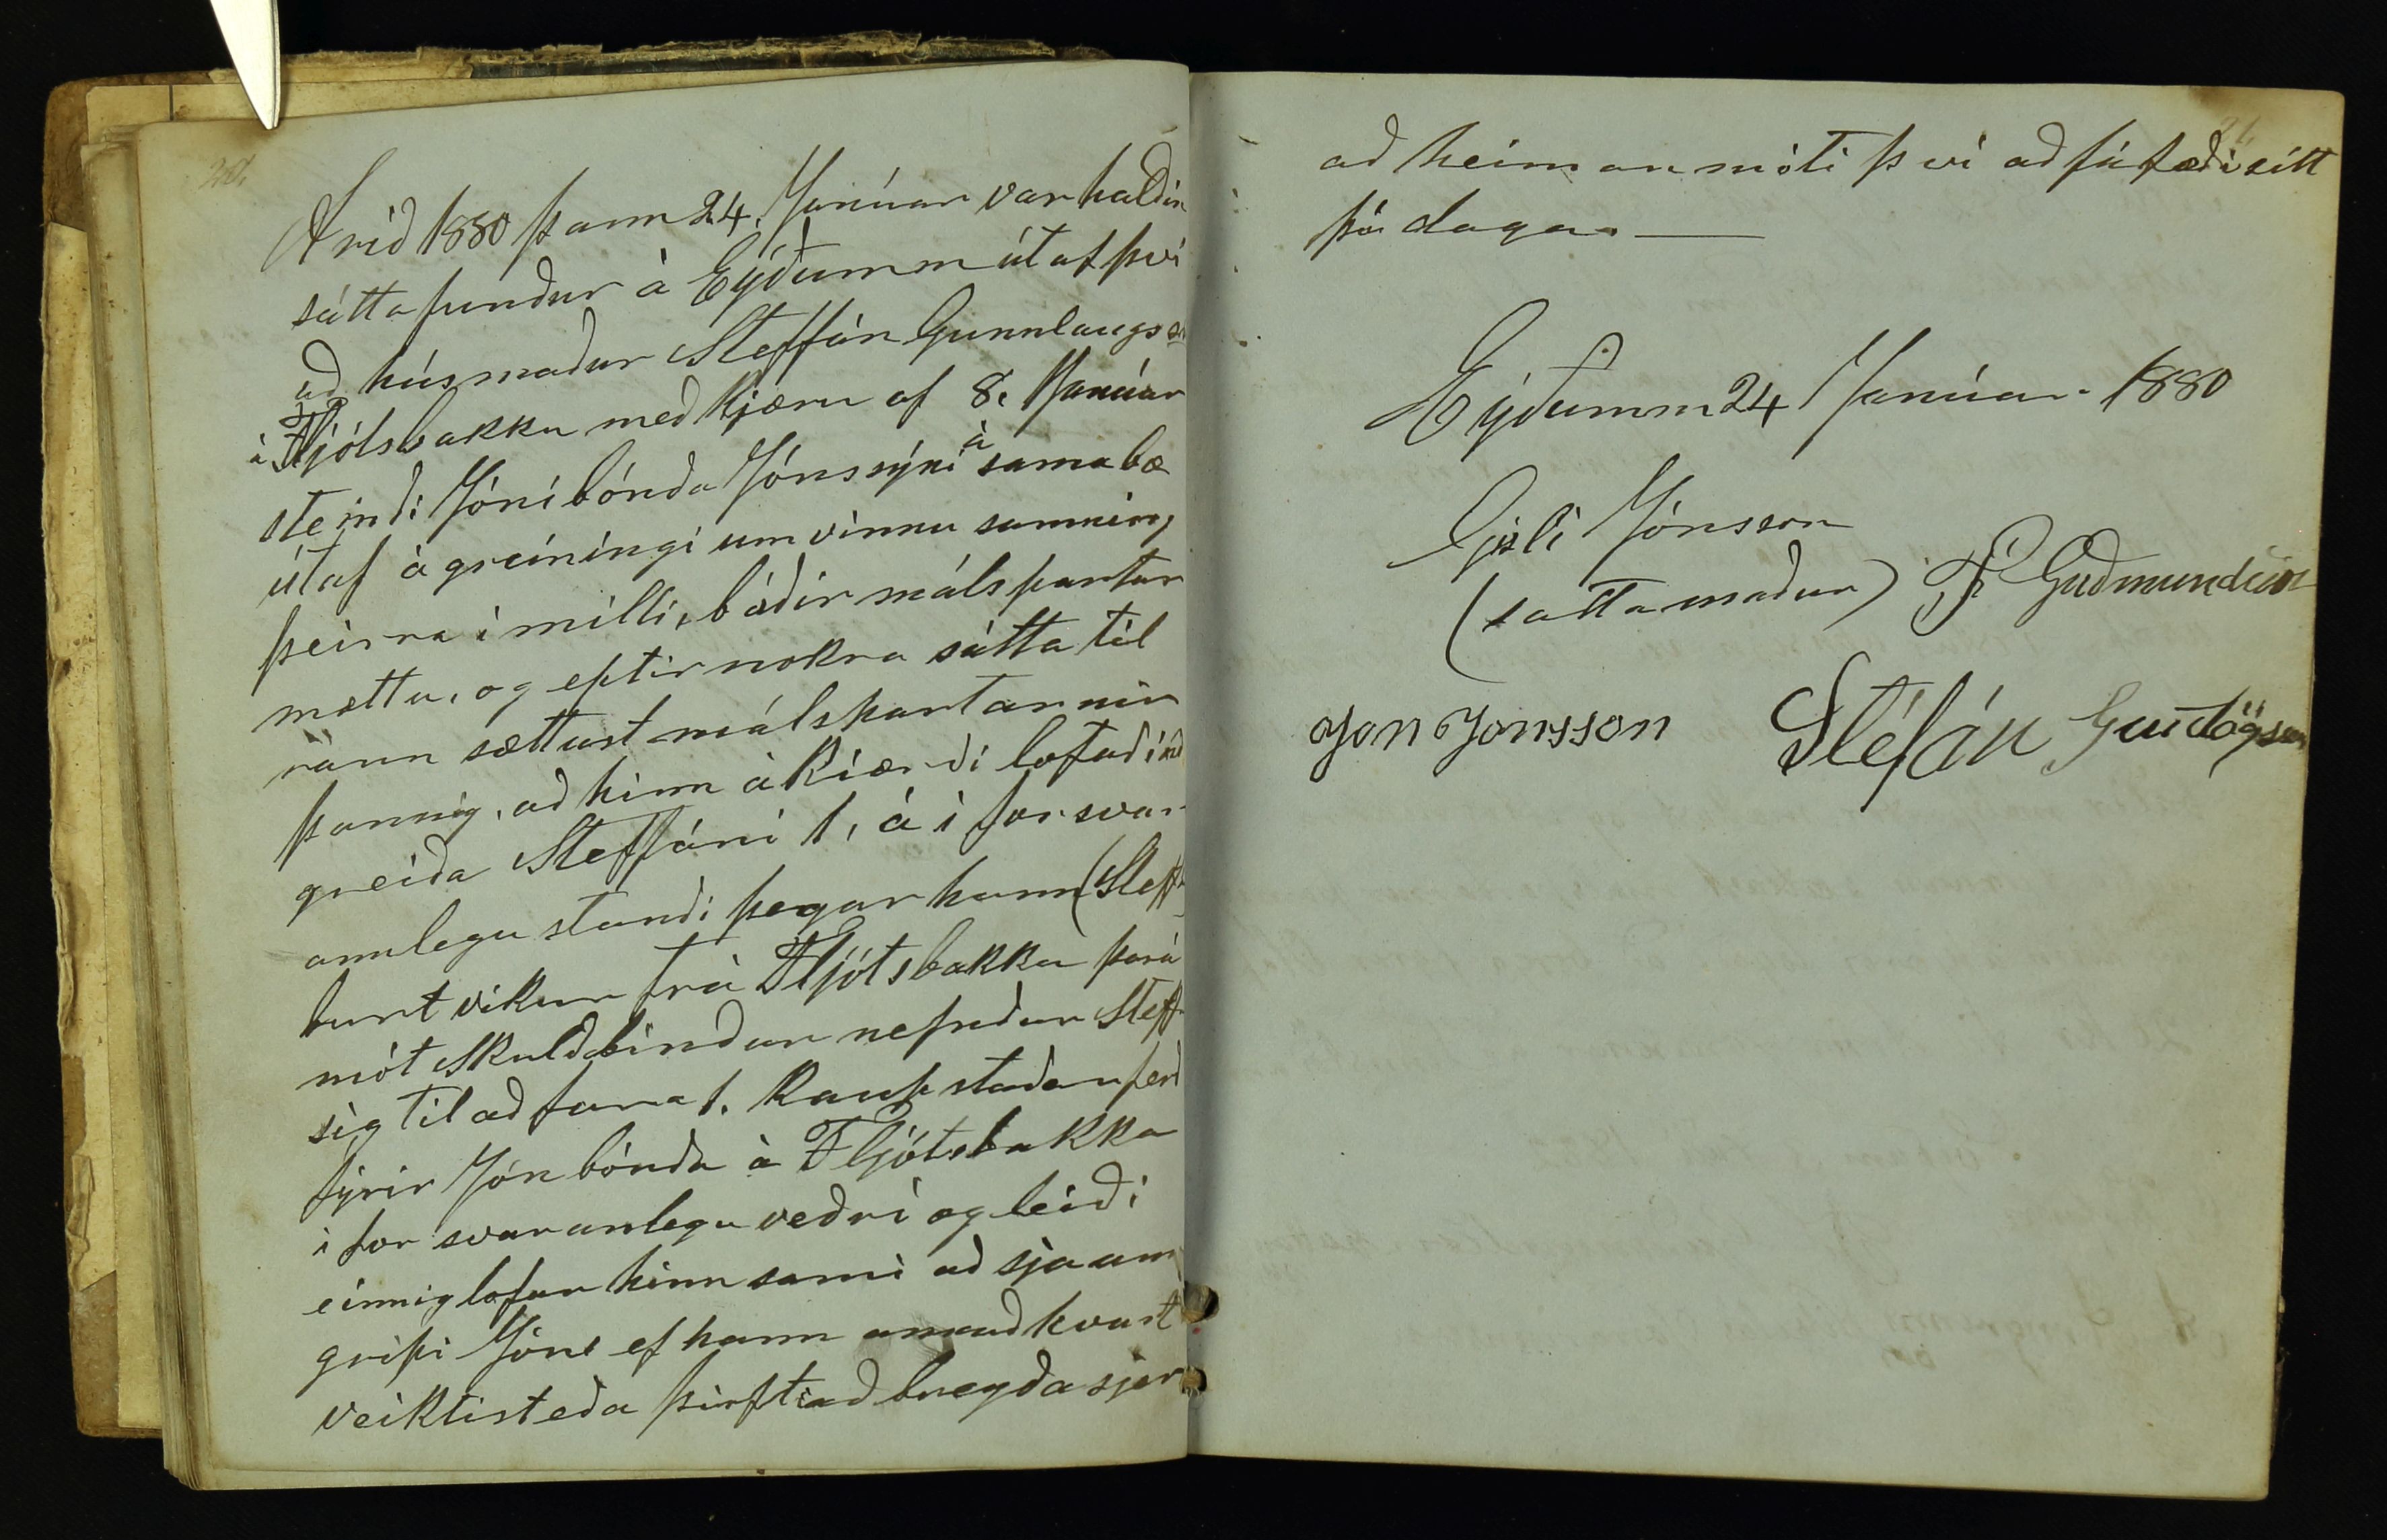 20.
Árið 1880 þann 24. Janúar var haldin
sátta fundur à Eyðumm út af því
að húsmaður Steffán Gunnlaugsson
á Fljótsbakka með kjæru af 8. Janúar
steindi Jóni bónda Jónssýni à sama bæ
útaf àgreiningi um vinnu samning
þeirra í milli, báðir málspartar
mættu, og eptir nokra sátta til
raun sættust málspartarnir
þannig, að hinn àkiærdi lofadi að
greiða Steffáni 1, á í forsvar
anlegu standi þegar hann (Steff
burt vikur frà Fljótsbakka þará
mót skuldbindur nefndur Steff
sig til að fara 1. Kaupstaðar ferð
fýrir Jón bónda à Fljótsbakka
i forsvaranlegu veðri og leiði
einnig lofar hinn sami að sja um
gripi Jóns ef hann annaðhvort
veiktist eða þirfti að bregða sjer
að heiman móti því að fá fæði sitt
þá daga. —
Eýðumm 24 Janúar 1880
Gísli Jónsson
(sattamaður) Guðmundsson
Jon Jonsson Stéfán